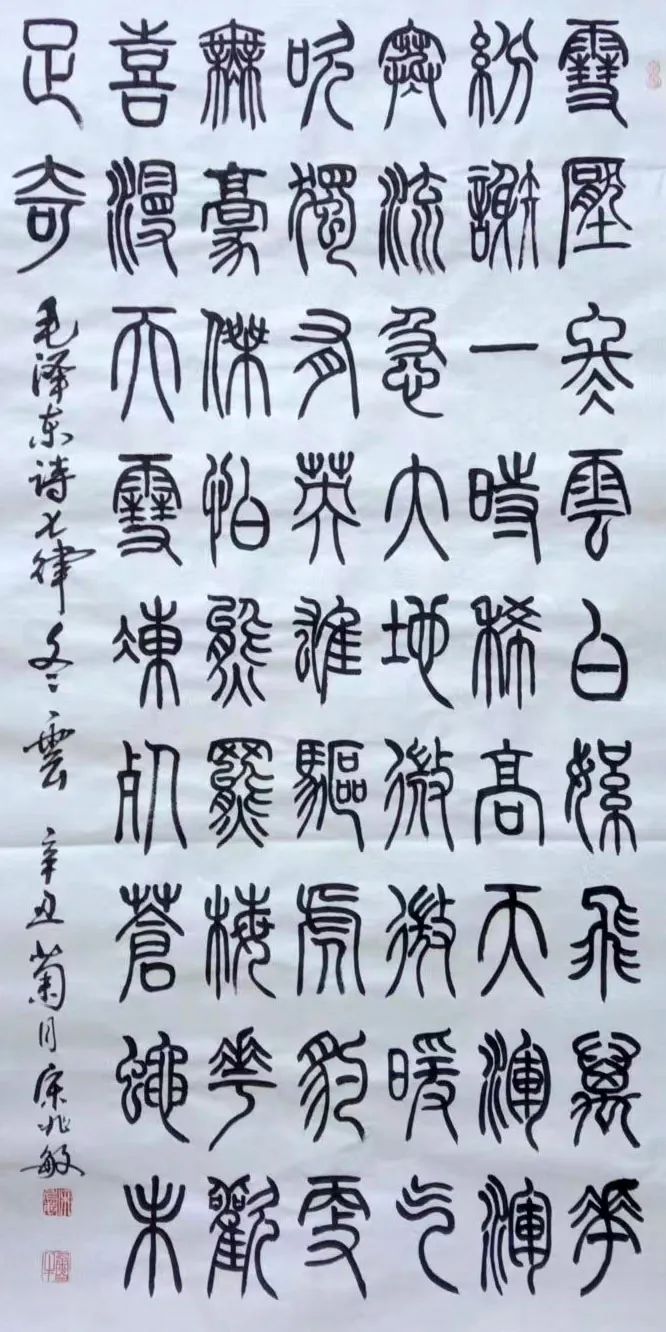 雪壓冬雲白絮飛萬花
紛謝一時稀高天渾渾
寒流急大地微微暖气
吹獨有英雄驅虎豹更
無豪傑怕熊羆梅花歡
喜漫天雪凍死蒼蠅未
足奇
毛泽东诗七律冬雲 辛丑菊月宋兆敏